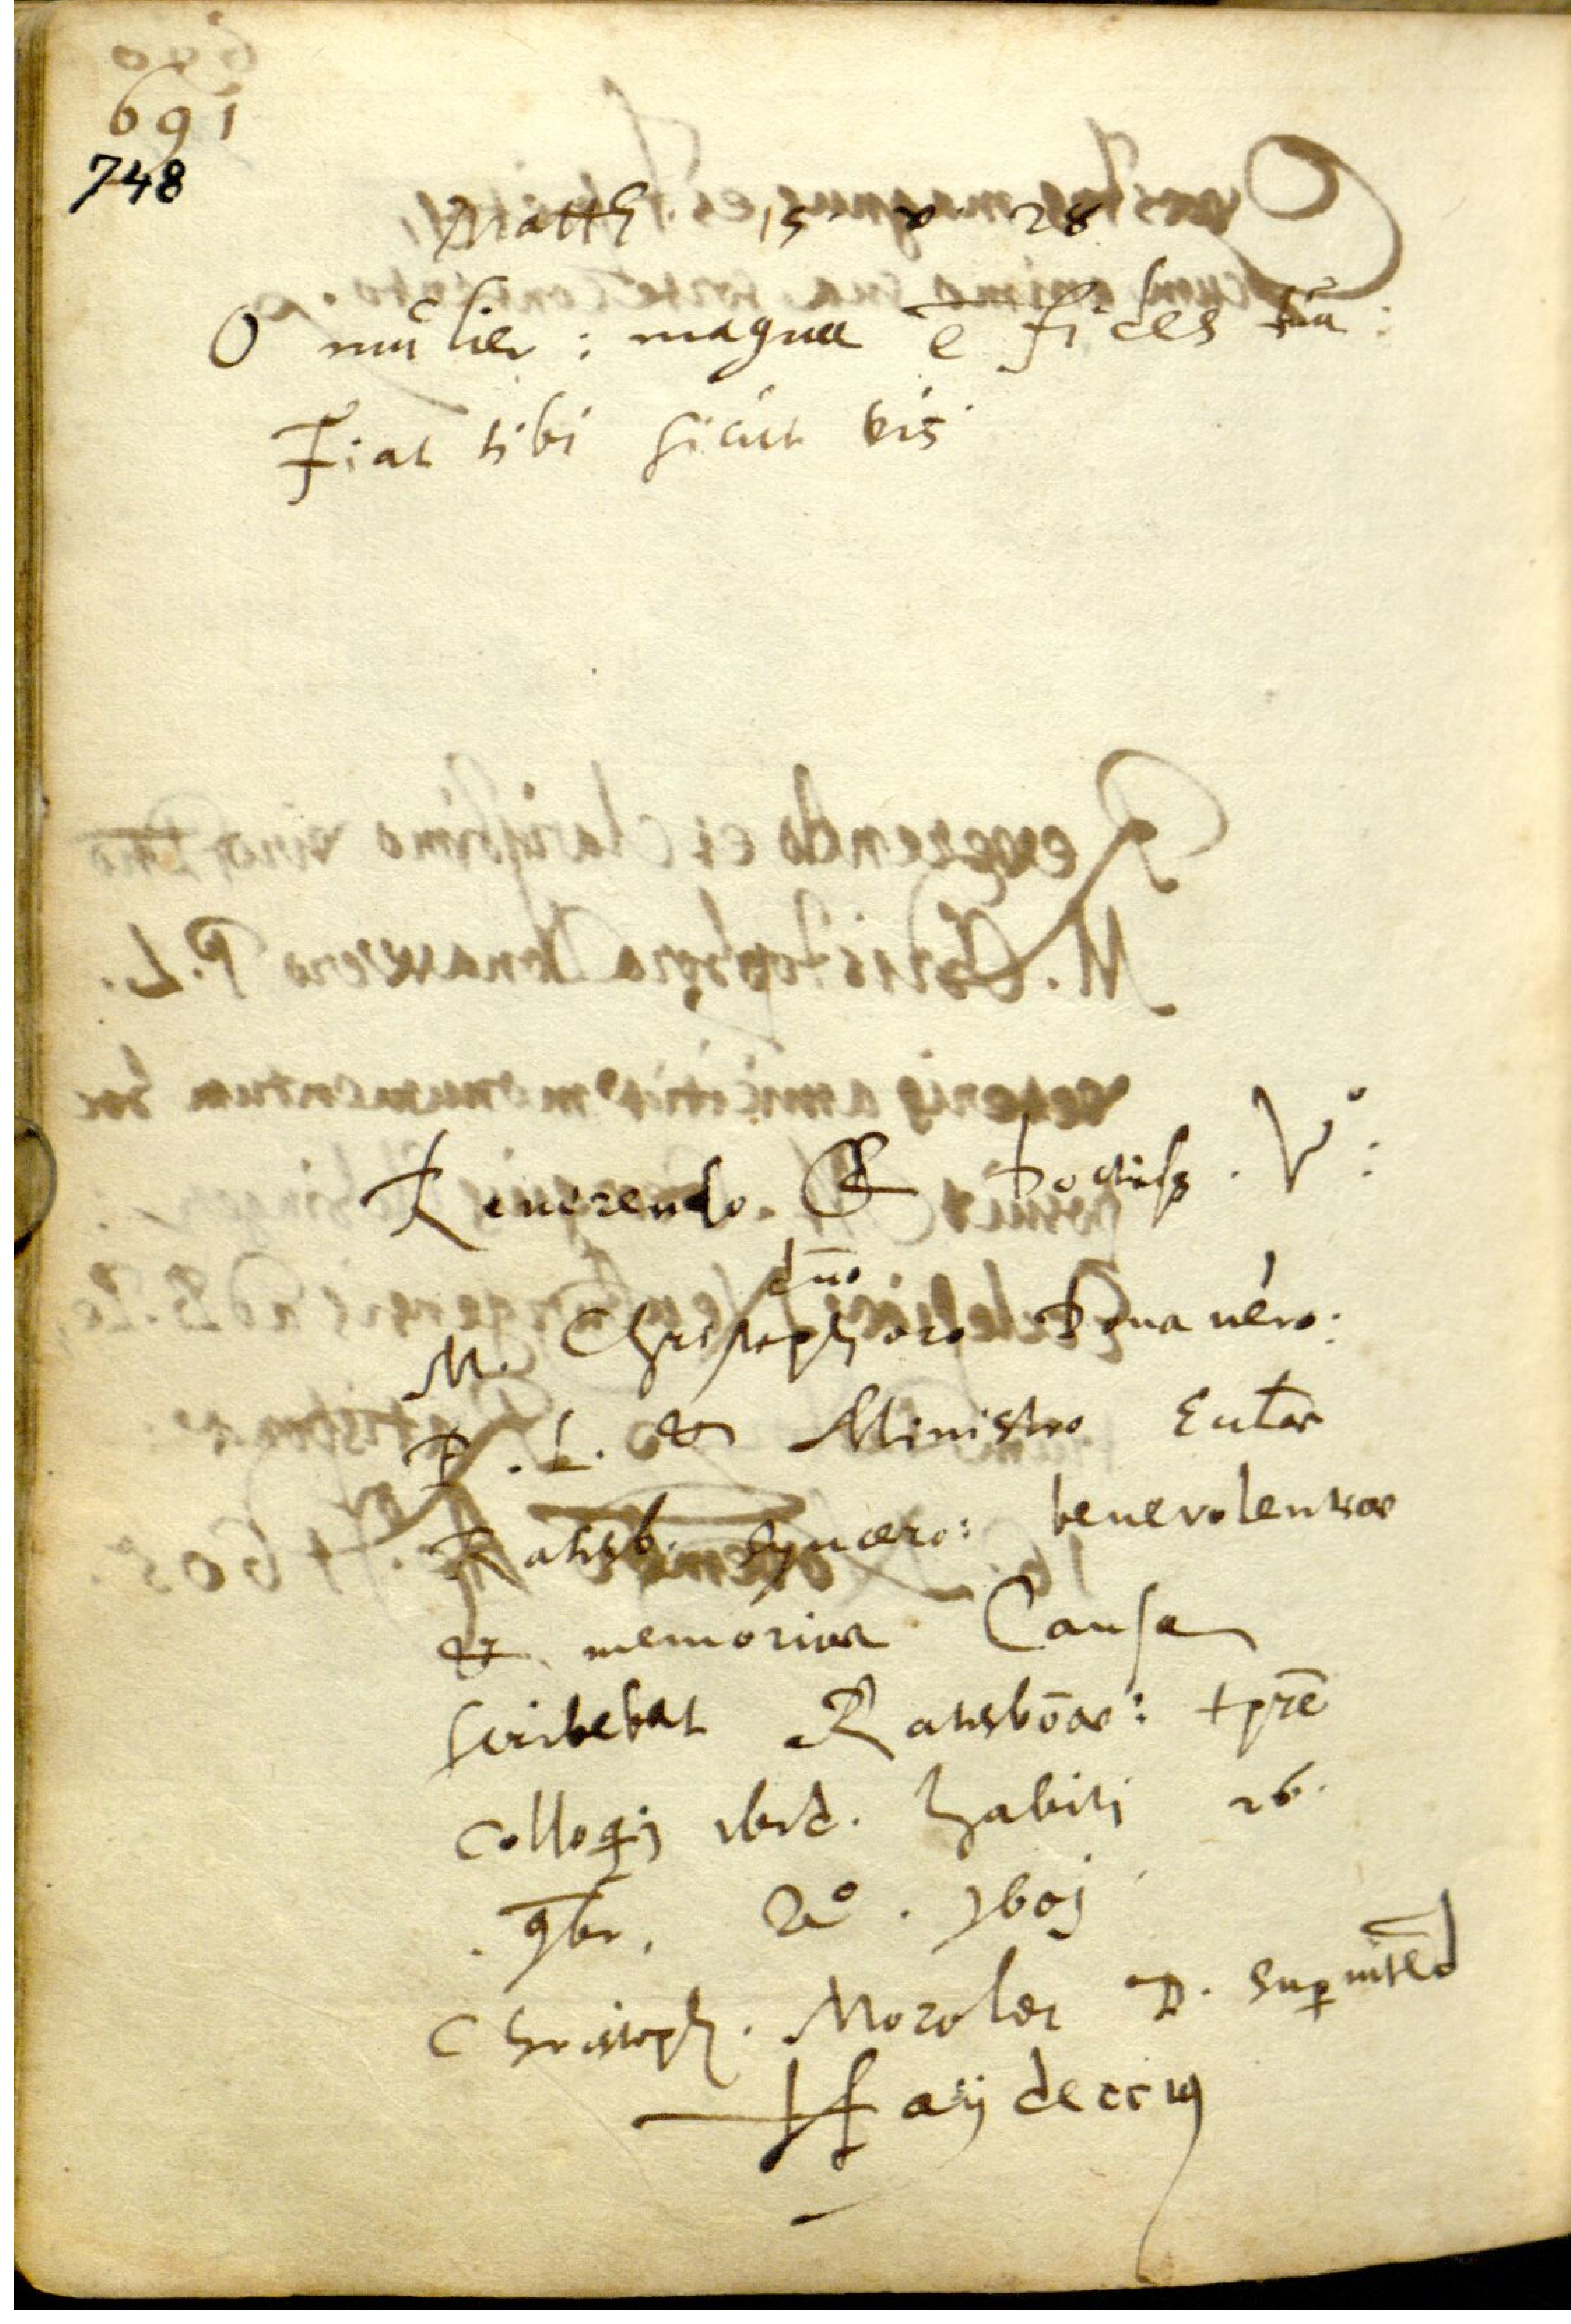 691
748
Matth 15 v 28
O mulier : magna ē fides tua :
Fiat tibi sicut vis
Reverendo. & doctiss. Vº :
dno
M. Christophoro Donavero :
P. L. & Ministro Eccłae
Ratisb. syncero : benevolentiae
& memoriae Causa
scribebat Ratisbōae : tpre
colloqij ibid. habiti 26.
9br. Aº. 1601
Christoph. Morolder D. Sup intēd
Haydeccens